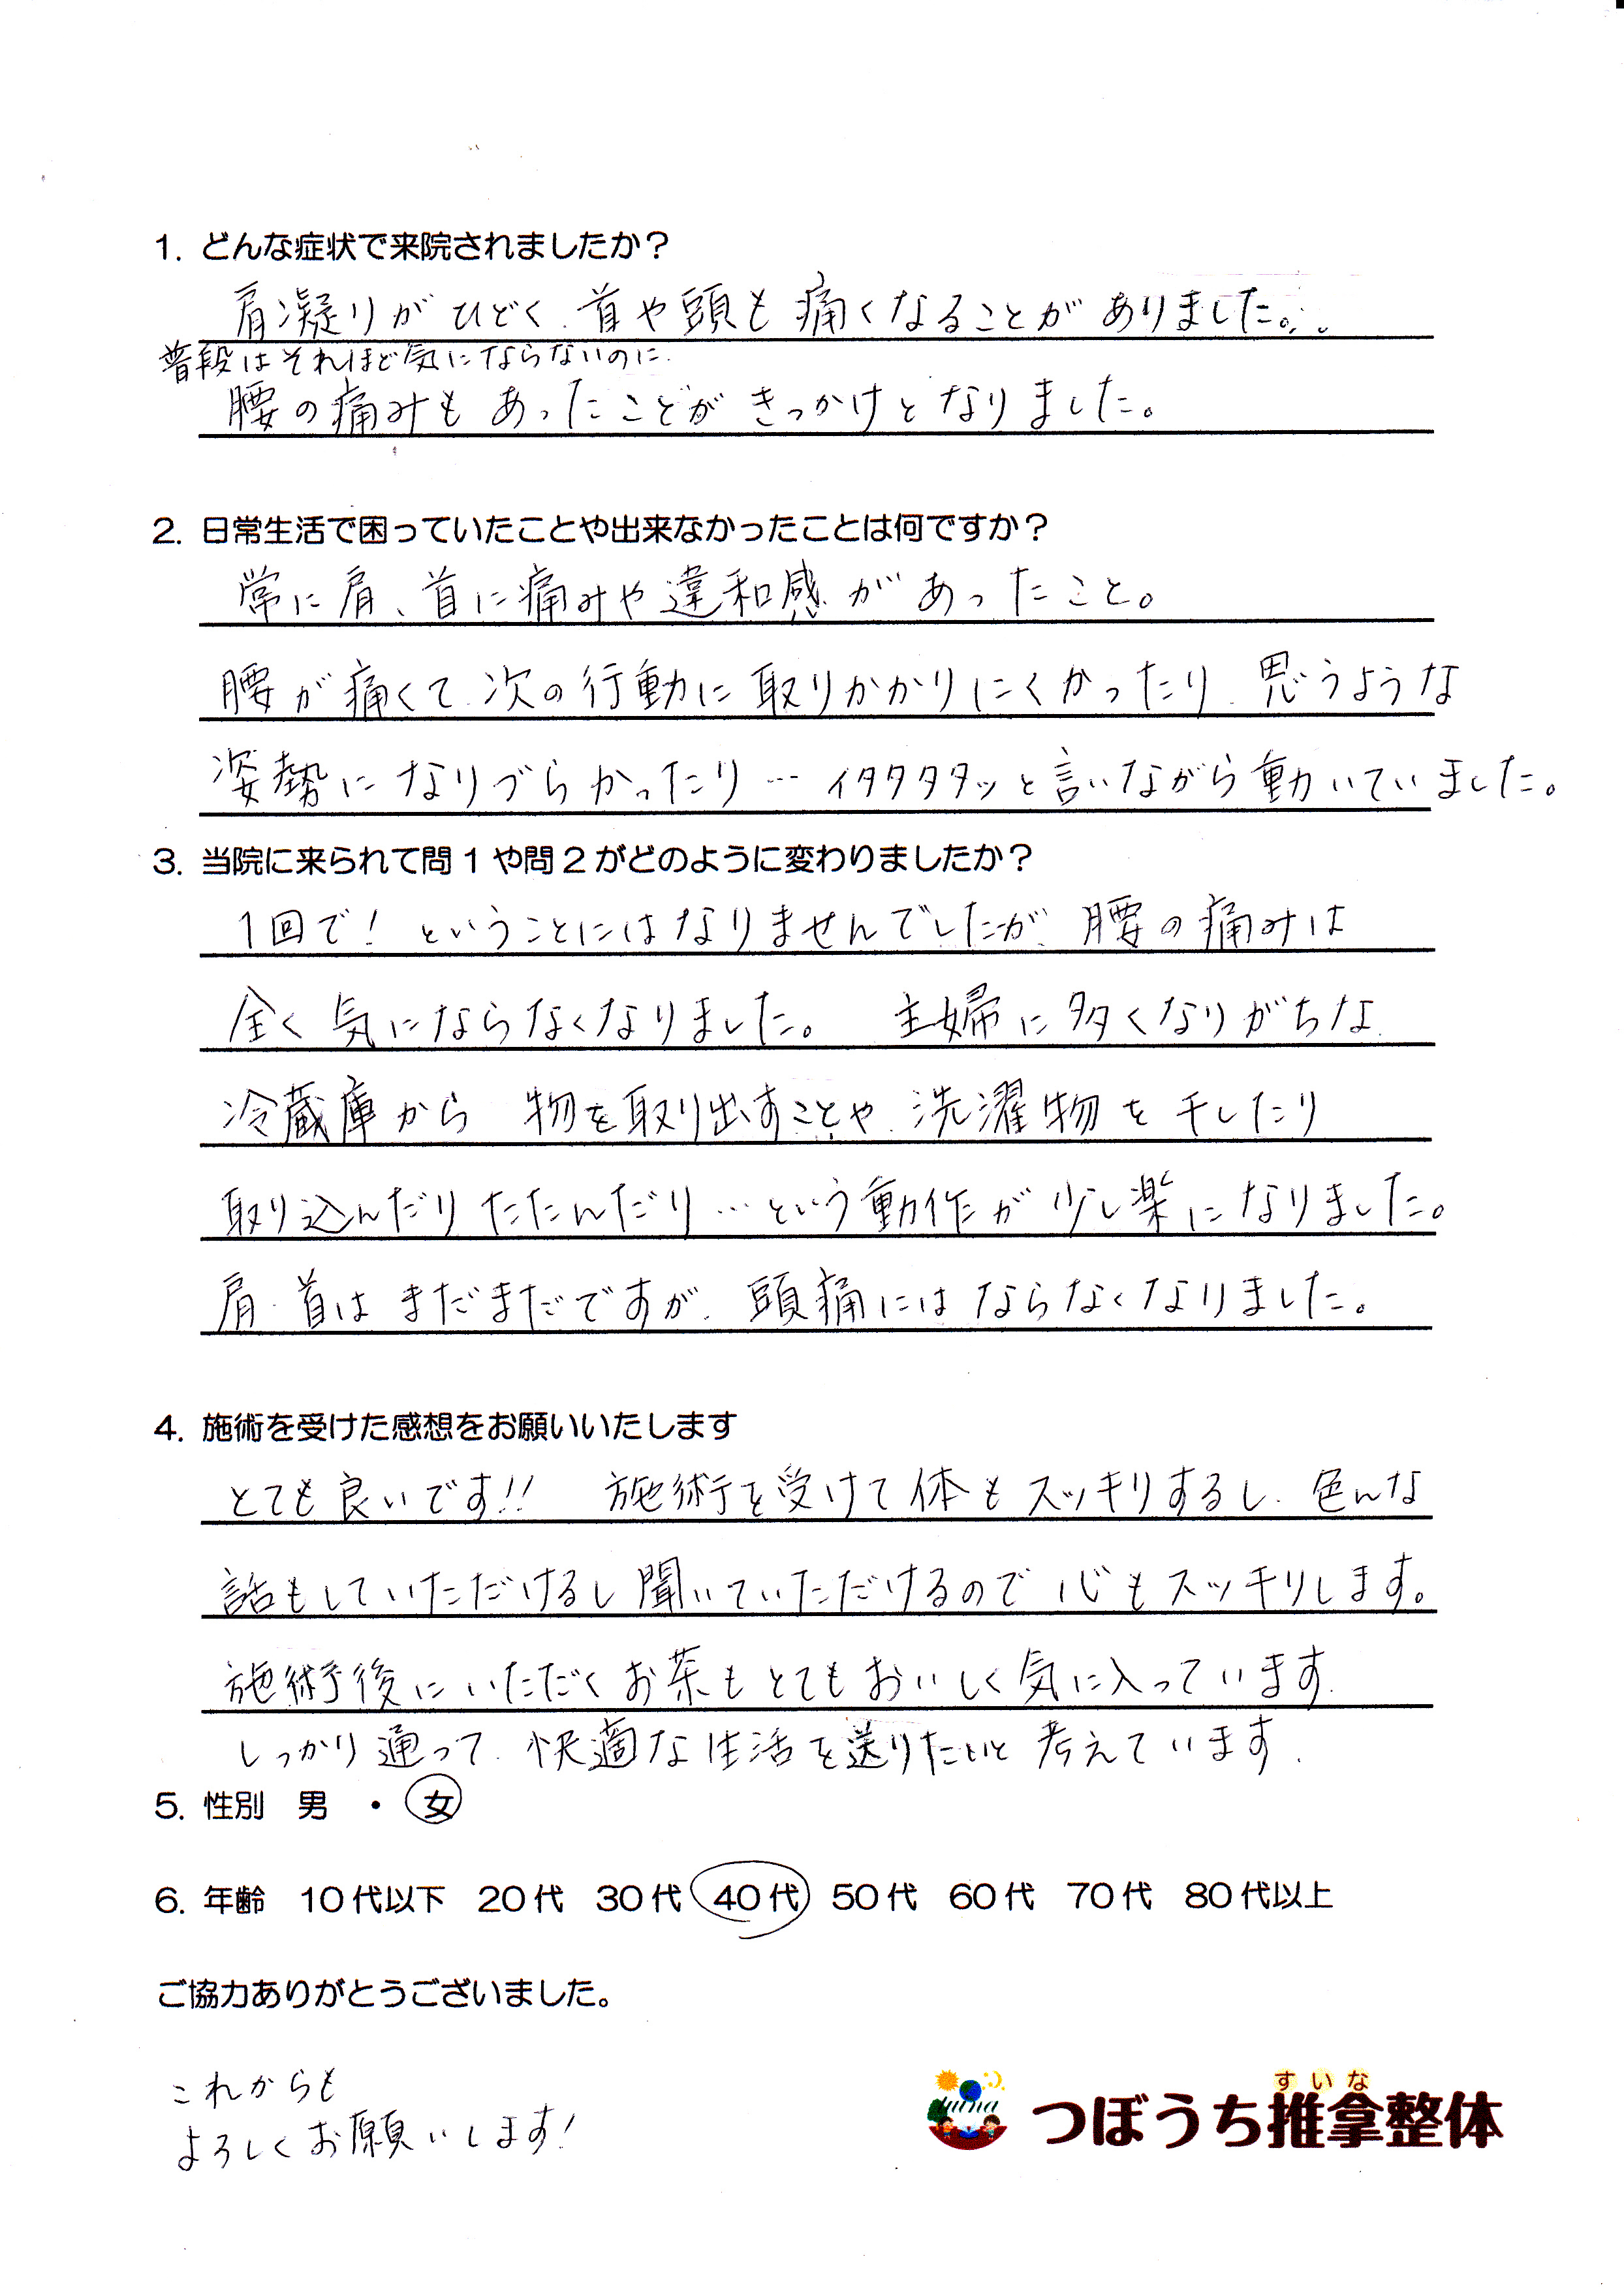 1. どんな症状で来院されましたか？
肩凝りがひどく、首や頭も痛くなることがありました。
普段はそれほど気にならないのに、
腰の痛みもあったことがきっかけとなりました。
2. 日常生活で困っていたことや出来なかったことは何ですか？
常に肩、首に痛みや違和感があったこと。
腰が痛くて、次の行動に取りかかりにくかったり、思うような
姿勢になりづらかったり… イタタタタッと言いながら動いていました。
3. 当院に来られて問１や問２がどのように変わりましたか？
1回で！ということにはなりませんでしたが、腰の痛みは
全く気にならなくなりました。 主婦に多くなりがちな、
冷蔵庫から 物を取り出すことや、洗濯物を干したり
取り込んだりたたんだり…という動作が少し楽になりました。
肩・首はまだまだですが、頭痛にはならなくなりました。
4. 施術を受けた感想をお願いいたします
とても良いです!! 施術を受けて体もスッキリするし、色んな
話もしていただけるし聞いていただけるので心もスッキリします。
施術後にいただくお茶もとてもおいしく気に入っています。
しっかり通って、快適な生活を送りたいと考えています。
5. 性別 男 ・ 女
6. 年齢 10代以下 20代 30代 40代 50代 60代 70代 80代以上
ご協力ありがとうございました。
これからも
よろしくお願いします！
すいな
つぼうち推拿整体